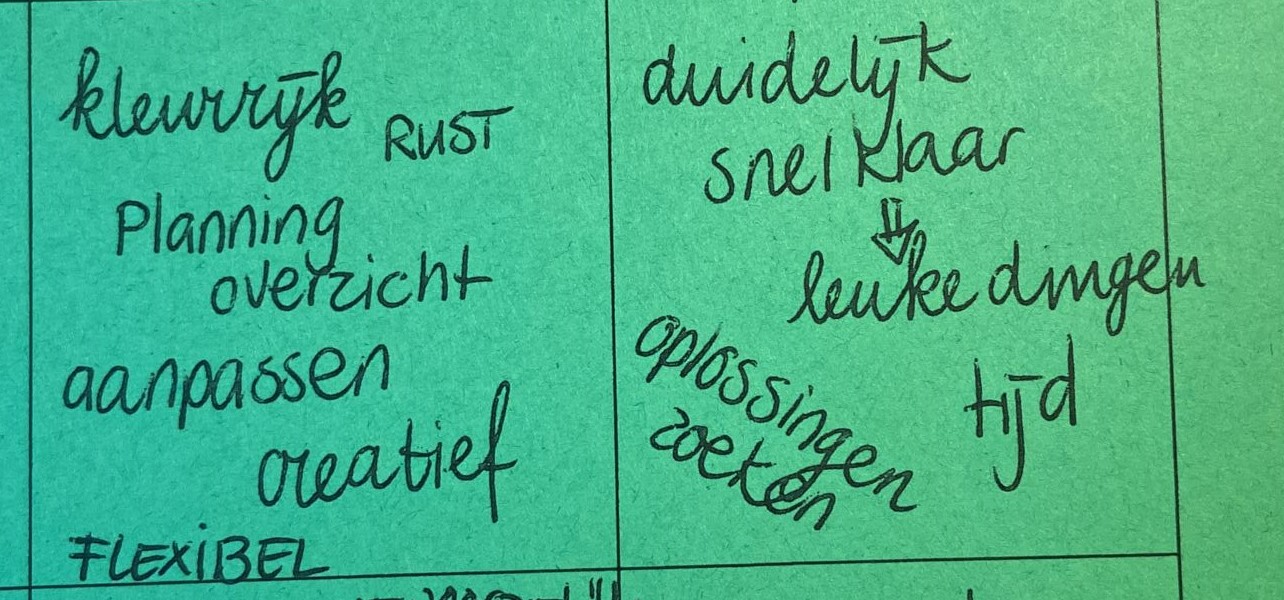 kleurrijk
RUST
Planning
overzicht
aanpassen
creatief
FLEXIBEL
duidelijk
snel klaar
⇓
leuke dingen
tijd
oplossingen
zoeken